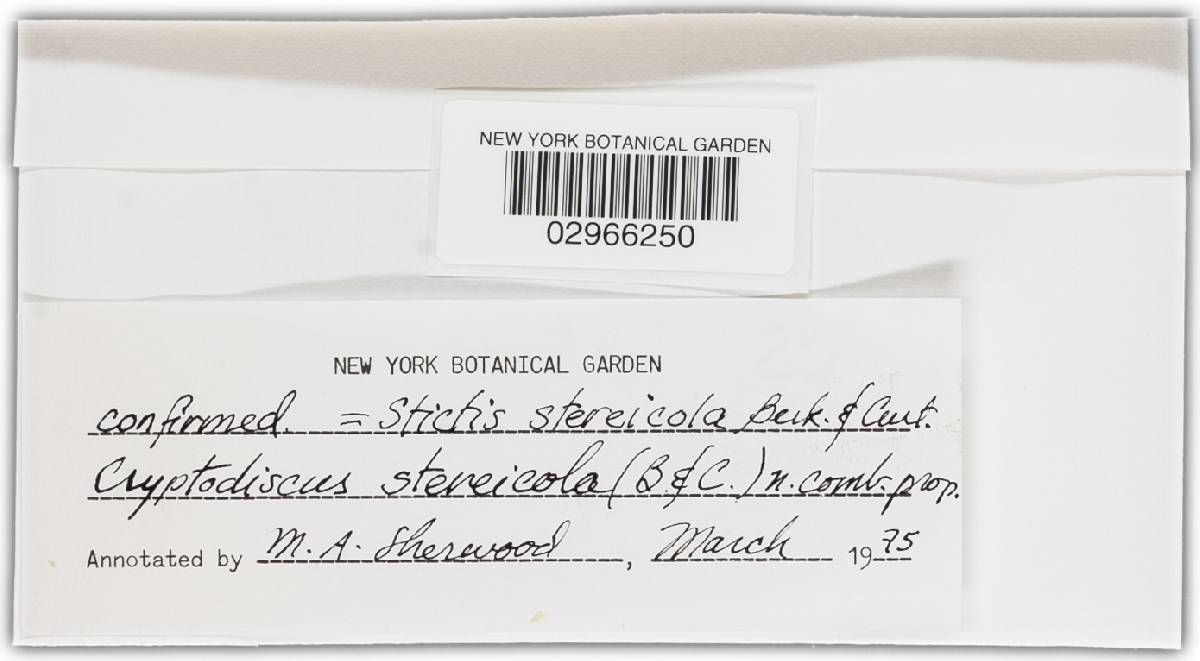 NEW YORK BOTANICAL GARDEN
02966250
NEW YORK BOTANICAL GARDEN
confirmed. = Stictis stereicola Berk. & Curt.
Cryptodiscus stereicola (B & C.) n. comb. prop.
Annotated by M. A. Sherwood, March 1975